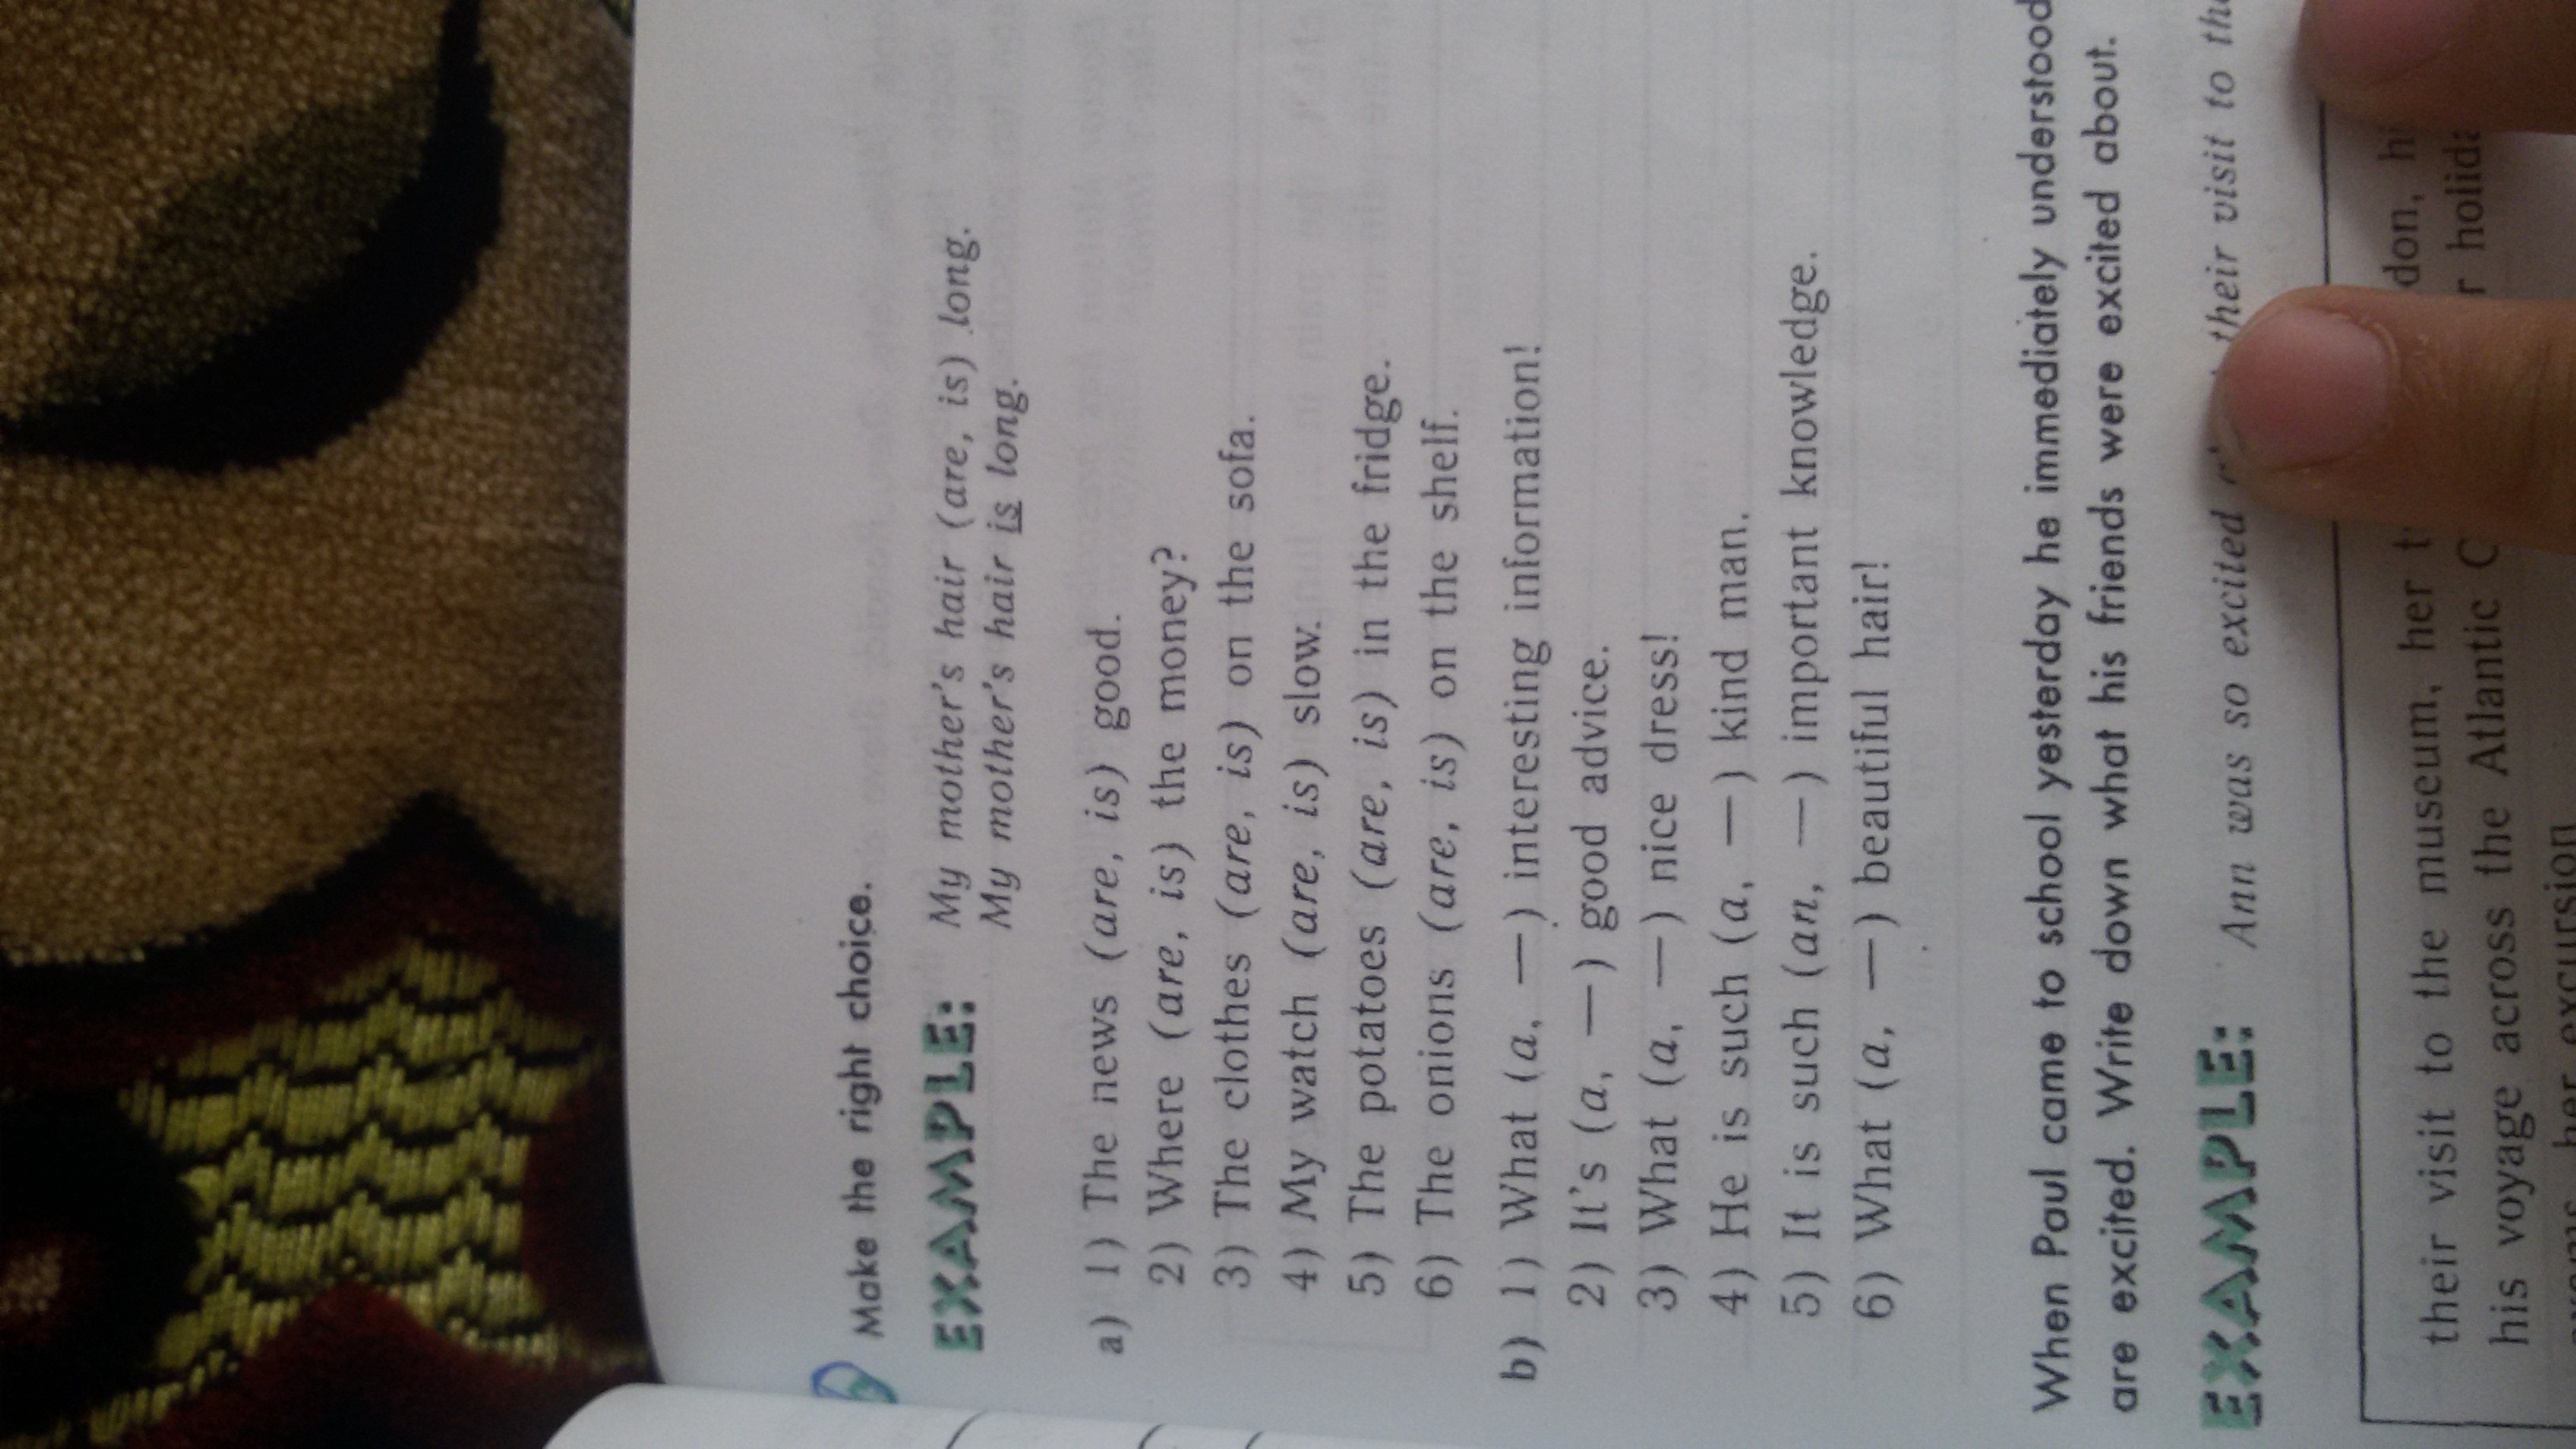 Make the right choice.
EXAMPLE: My mother's hair (are, is) long.
My mother's hair is long.
a) 1) The news (are, is) good.
2) Where (are, is) the money?
3) The clothes (are, is) on the sofa.
4) My watch (are, is) slow.
5) The potatoes (are, is) in the fridge.
6) The onions (are, is) on the shelf.
b) 1) What (a, —) interesting information!
2) It's (a, —) good advice.
3) What (a, —) nice dress!
4) He is such (a, —) kind man.
5) It is such (an, —) important knowledge.
6) What (a, —) beautiful hair!
When Paul came to school yesterday he immediately understood
are excited. Write down what his friends were excited about.
EXAMPLE: Ann was so excited their visit to the
their visit to the museum, her
his voyage across the Atlantic
her excursion